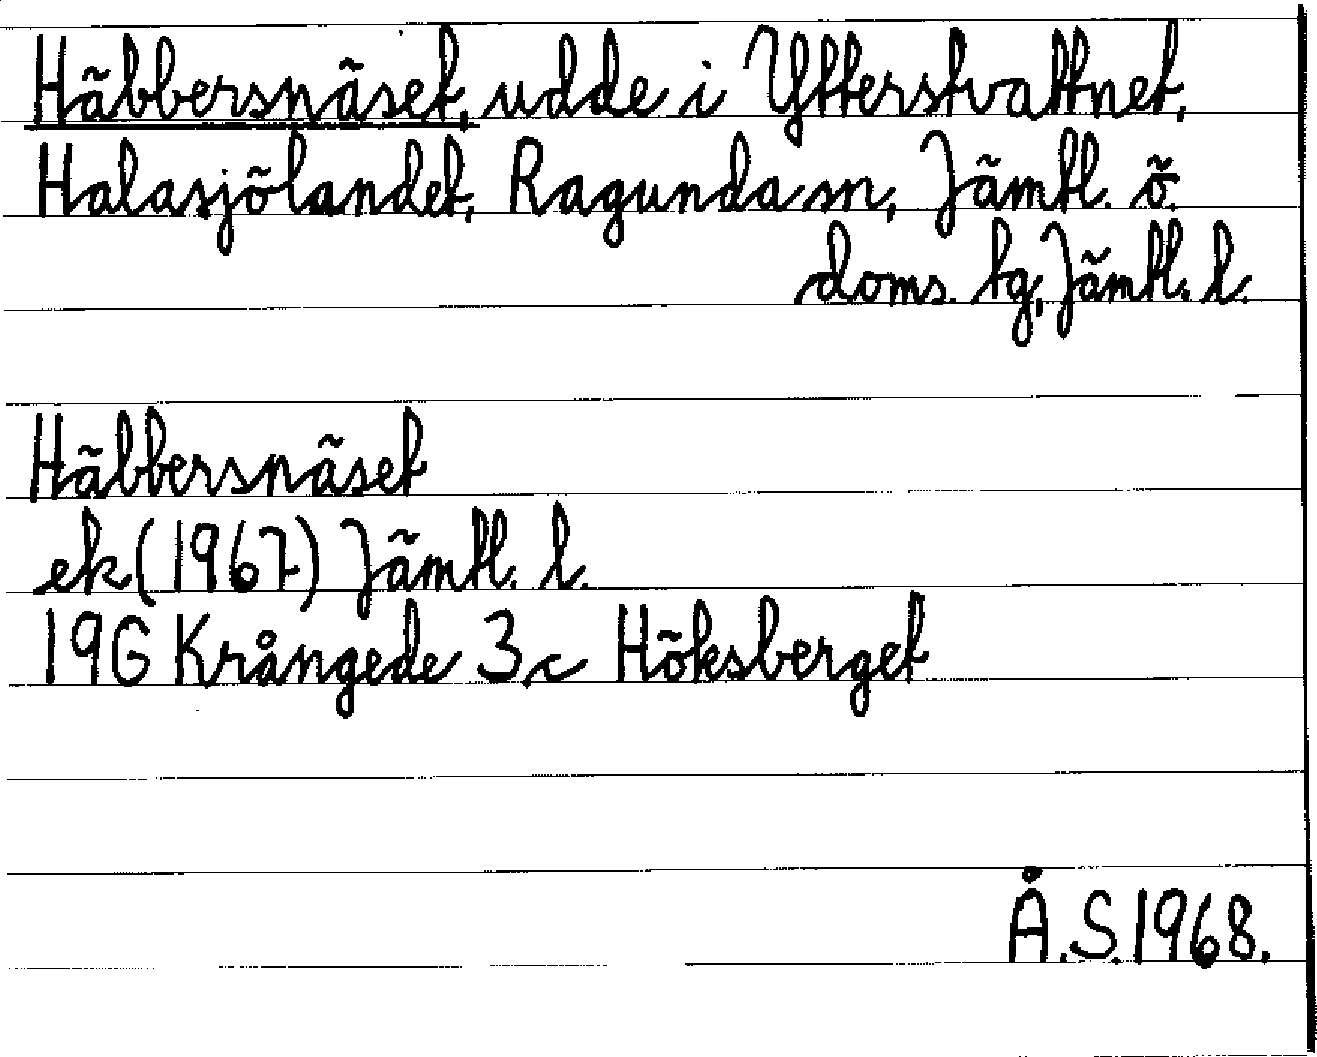 Häbbersnäset, udde i Ytterstvattnet,
Halasjölandet, Ragunda sn, Jämtl. ö.
doms. tg, Jämtl. l.
Häbbersnäset
ek (1967) Jämtl. l.
19G Krångede 3c Höksberget
Å.S. 1968.